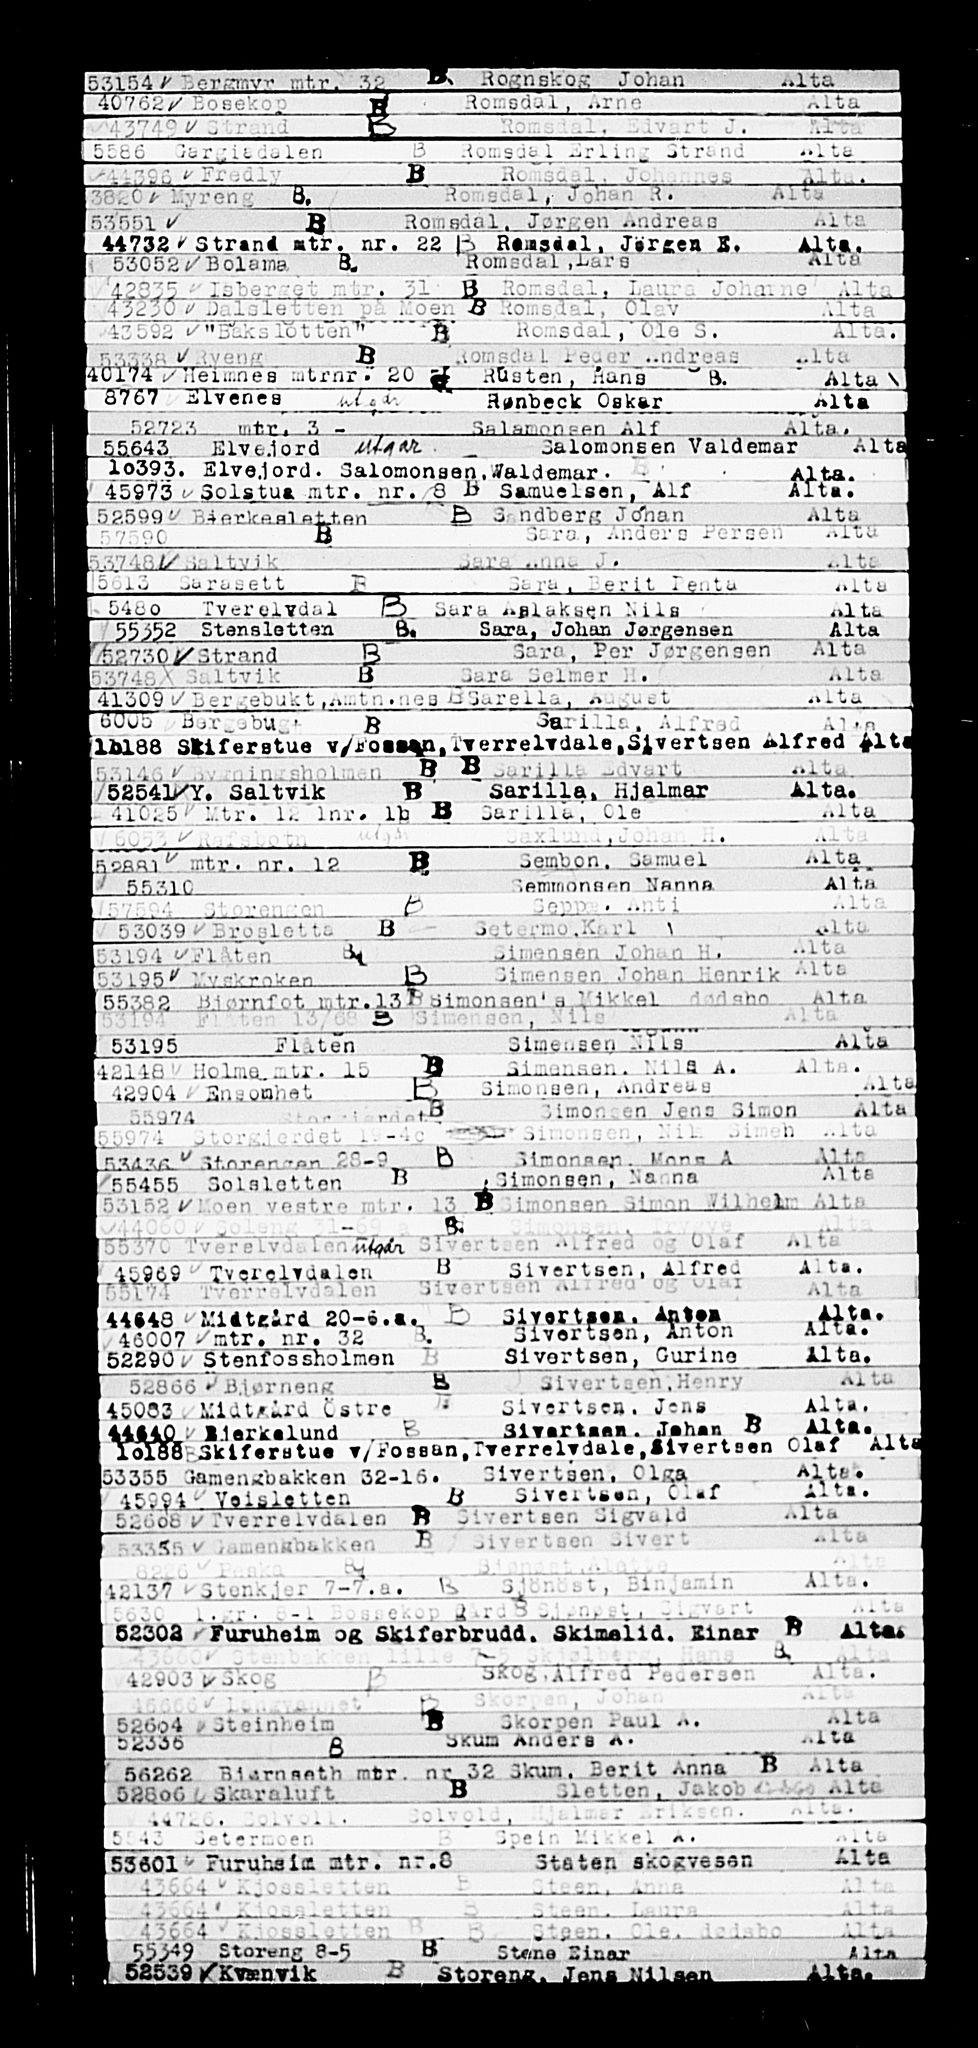 53154 ✓ Bergmyr mtr. 32 B. Rognskog Johan Alta
40762 ✓ Bosekop B Romsdal, Arne Alta
43749 ✓ Strand B Romsdal, Edvart J. Alta
5586 Gargiadalen B Romsdal Erling Strand Alta
44396 ✓ Fredly B Romsdal, Johannes Alta.
3820 ✓ Myreng B. Romsdal, Johan R. Alta
53551 ✓ B Romsdal, Jørgen Andreas Alta
44732 ✓ Strand mtr. nr. 22 B Romsdal, Jørgen E. Alta.
53052 ✓ Bolama B. Romsdal, Lars Alta
42835 ✓ Isberget mtr. 31 B Romsdal, Laura Johanne Alta
43230 ✓ Dalsletten på Moen B Romsdal, Olav Alta
43592 ✓ "Bakslotten" B Romsdal, Ole S. Alta.
53338 ✓ Ryeng B Romsdal Peder Andreas Alta
40174 ✓ Heimnes mtrnr. 20 Rusten, Hans B. Alta
8767 Elvenes utgår Rønbeck Oskar Alta
52723 mtr. 3 - Salamonsen Alf Alta.
55643 Elvejord utgår Salomonsen Valdemar Alta
lo393. Elvejord. Salomonsen, Waldemar. B Alta.
45973 ✓ Solstua mtr. nr. 8 B Samuelsen, Alf Alta.
52599 ✓ Bjerkesletten B Sandberg Johan Alta
57590 B Sara, Anders Persen Alta
53748 ✓ Saltvik Sara Anna J. Alta
5613 Sarasett B Sara, Berit Penta Alta
5480 Tverelvdal B Sara Aslaksen Nils Alta
55352 Stensletten B. Sara, Johan Jørgensen Alta
52730 ✓ Strand B Sara, Per Jørgensen Alta
53748 X Saltvik B Sara Selmer H. Alta
41309 ✓ Bergebukt, Amtn.nes B Sarella, August Alta
6005 Bergebugt B Sarilla, Alfred Alta
lo188 Skiferstue v/Fossan, Tverrelvdale, Sivertsen Alfred Alta
53146 ✓ Bygningsholmen B B Sarilla Edvart Alta
52541 ✓ Y. Saltvik B Sarilla, Hjalmar Alta.
41025 ✓ Mtr. 12 lnr. lb B Sarilla, Ole Alta
6053 ✓ Rafsbotn utgår Saxlund, Johan H. Alta
52881 ✓ mtr. nr. 12 B Sembon, Samuel Alta
55310 Semmonsen Nanna Alta
57594 Storengen B Seppe. Anti Alta
53039 ✓ Brosletta B Setermo, Karl Alta
53194 ✓ Flåten B Simensen Johan H. Alta
53195 ✓ Myskroken B Simensen Johan Henrik Alta
55382 Bjørnfot mtr.13 B Simonsen's Mikkel dødsbo Alta
53194 Flåten 13/68 B Simensen, Nils Alta
53195 Flåten Simensen Nils Alta
42148 ✓ Holme mtr. 15 B Simensen, Nils A. Alta.
42904 ✓ Ensomhet B Simonsen, Andreas Alta
55974 Storgjerdet B Simonsen Jens Simon Alta
55974 Storgjerdet 19-4c Simonsen, Nils Simeh Alta
53436 ✓ Storengen 28-9 B Simonsen, Mons A Alta
55455 Solsletten B Simonsen, Nanna Alta
53152 ✓ Moen vestre mtr. 13 B Simonsen Simon Wilhelm Alta
44060 ✓ Soleng 31-69 B. Simonsen, Trygve Alta
55370 Tverelvdalen utgår Sivertsen Alfred og Olaf Alta
45969 ✓ Tverelvdalen B Sivertsen, Alfred Alta.
55174 Tverrelvdalen Sivertsen Alfred og Olaf Alta
44648 ✓ Midtgård 20-6.a. B Sivertsen, Anton Alta.
46007 ✓ mtr. nr. 32 B. Sivertsen, Anton Alta.
52290 ✓ Stenfossholmen B Sivertsen, Gurine Alta.
52866 ✓ Bjørneng B Sivertsen, Henry Alta
45083 ✓ Midtgård Östre Sivertsen, Jens Alta.
44640 ✓ Bjerkelund B Sivertsen, Johan B Alta.
lo188 B Skiferstue v/Fossan, Tverrelvdale, Sivertsen Olaf Alta
53355 Gamengbakken 32-16. Sivertsen, Olga Alta.
45994 ✓ Veisletten B Sivertsen, Olaf Alta.
52608 ✓ Tverrelvdalen B Sivertsen Sigvald Alta
53355 ✓ Gamengbakken B Sivertsen Sivert Alta
8226 ✓ Peska B Alta
42137 ✓ Stenkjer 7-7.a. B Sjönöst, Binjamin Alta.
5630 l.gr. 8-1 Bossekop gård B Sjønøst, Sigvart Alta
52302 ✓ Furuheim og Skiferbrudd. Skimelid. Einar B Alta.
43660 ✓ Stenbakken lille 7-5 Skjølberg, Hans B. Alta
42903 ✓ Skog B Skog, Alfred Pedersen Alta.
46666 ✓ Langvannet B Skorpen, Johan Alta
52604 ✓ Steinheim B Skorpen Paul A. Alta
52336 B Skum Anders A. Alta
56262 Bjørnseth mtr. nr 32 Skum, Berit Anna B Alta
52806 ✓ Skaraluft B Sletten, Jakob Alta
44726. Solvoll. Solvold, Hjalmar Eriksen. Alta.
5543 Setermoen B Spein Mikkel A. Alta
53601 ✓ Furuheim mtr. nr.8 Staten skogvesen Alta
43664 ✓ Kjossletten B Steen, Anna Alta
43664 ✓ Kjossletten B Steen, Laura Alta
43664 ✓ Kjossletten B B Steen, Ole, dødsbo Alta
55349 Storeng 8-5 B Stene Einar Alta
52539 ✓ Kvænvik B Storeng, Jens Nilsen Alta.